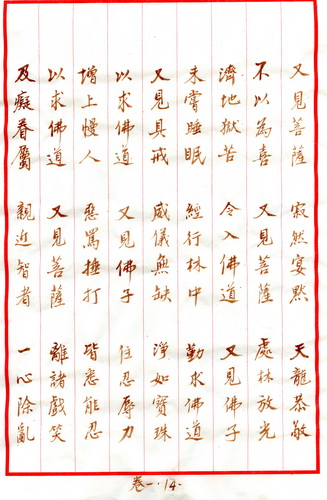 又見菩薩 寂然宴默 天龍恭敬
不以為喜 又見菩薩 處林放光
濟地獄苦 令入佛道 又見佛子
未嘗睡眠 經行林中 勤求佛道
又見具戒 威儀無缺 淨如寶珠
以求佛道 又見佛子 住忍辱力
增上慢人 惡罵捶打 皆悉能忍
以求佛道 又見菩薩 離諸戲笑
及癡眷屬 親近智者 一心除亂
卷一·14·